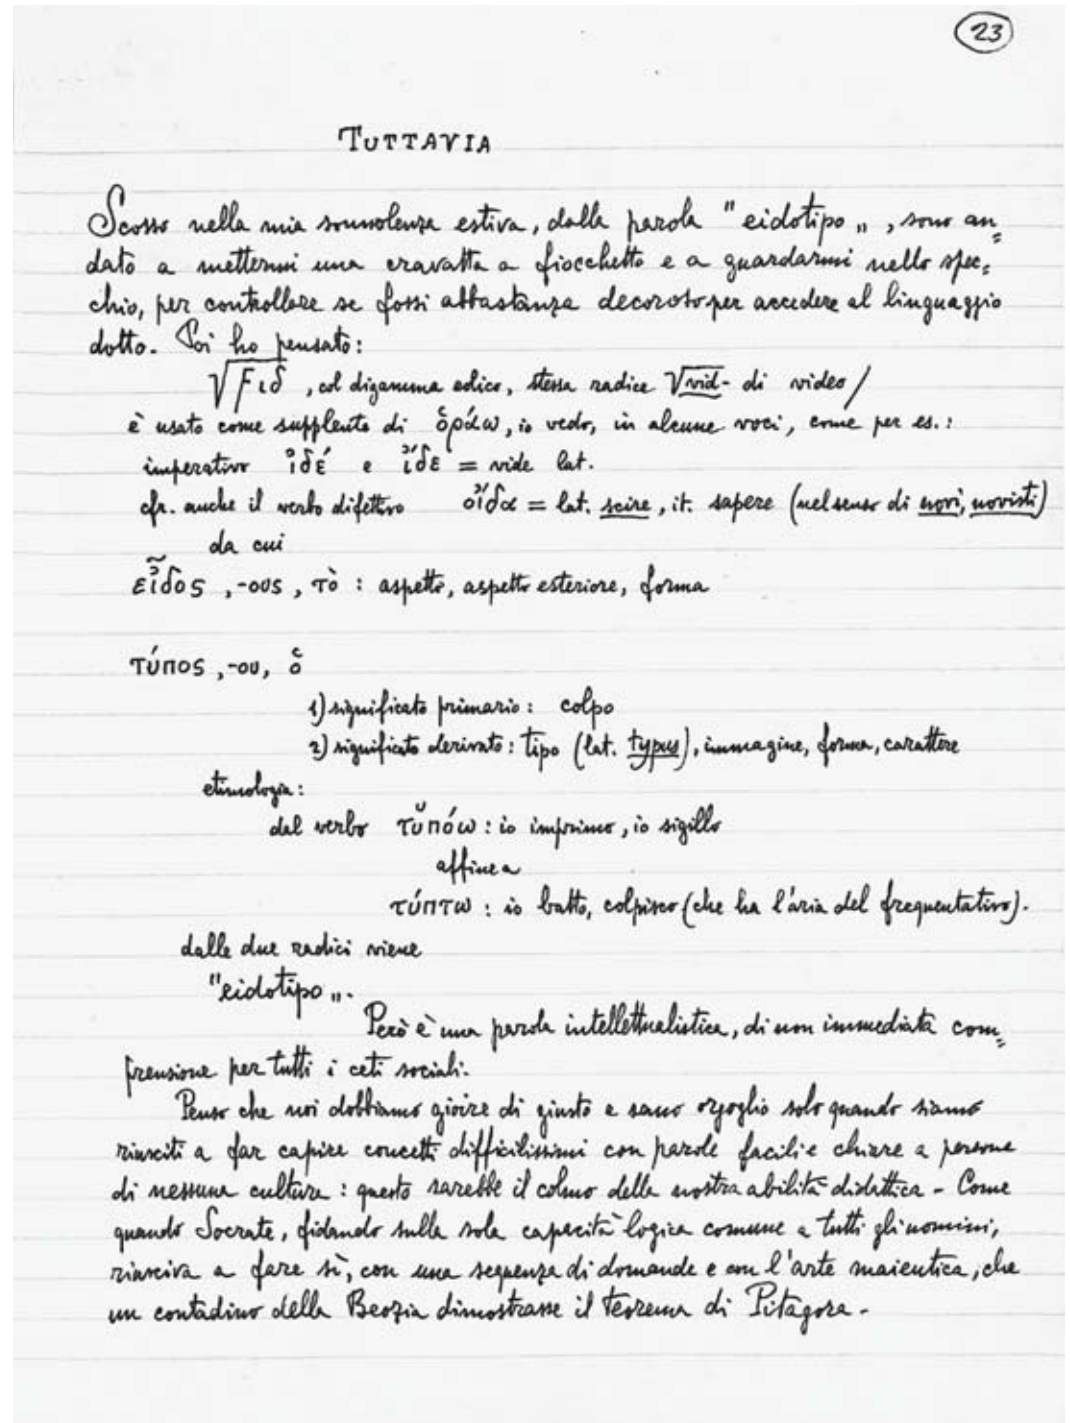 23
TUTTAVIA
Scosso nella mia sonnolenza estiva, dalla parola "eidotipo„, sono an=
dato a mettermi una cravatta a fiocchetto e a guardarmi nello spec=
chio, per controllare se fossi abbastanza decoroso per accedere al linguaggio
dotto. Poi ho pensato:
√Fιδ, col digamma eolico, stessa radice √vid- di video/
è usato come supplente di ὁράω, io vedo, in alcune voci, come per es.:
imperativo ἰδέ e ἴδε = vide lat.
cfr. anche il verbo difettivo οἴδα = lat. scire, it. sapere (nel senso di novi, novisti)
da cui
εἶδος, -ους, τὸ : aspetto, aspetto esteriore, forma
τύπος, -ου, ὁ
1) significato primario: colpo
2) significato derivato: tipo (lat. typus), immagine, forma, carattere
etimologia:
dal verbo τῠπόω: io imprimo, io sigillo
affine a
τύπτω: io batto, colpisco (che ha l'aria del frequentativo).
dalle due radici viene
"eidotipo„.
Però è una parola intellettualistica, di non immediata com=
prensione per tutti i ceti sociali.
Penso che noi dobbiamo gioire di giusto e sano orgoglio solo quando siamo
riusciti a far capire concetti difficilissimi con parole facili e chiare a persone
di nessuna cultura: questo sarebbe il colmo della nostra abilità didattica - Come
quando Socrate, fidando sulla sola capacità logica comune a tutti gli uomini,
riusciva a fare sì, con una sequenza di domande e con l'arte maieutica, che
un contadino della Beozia dimostrasse il teorema di Pitagora -